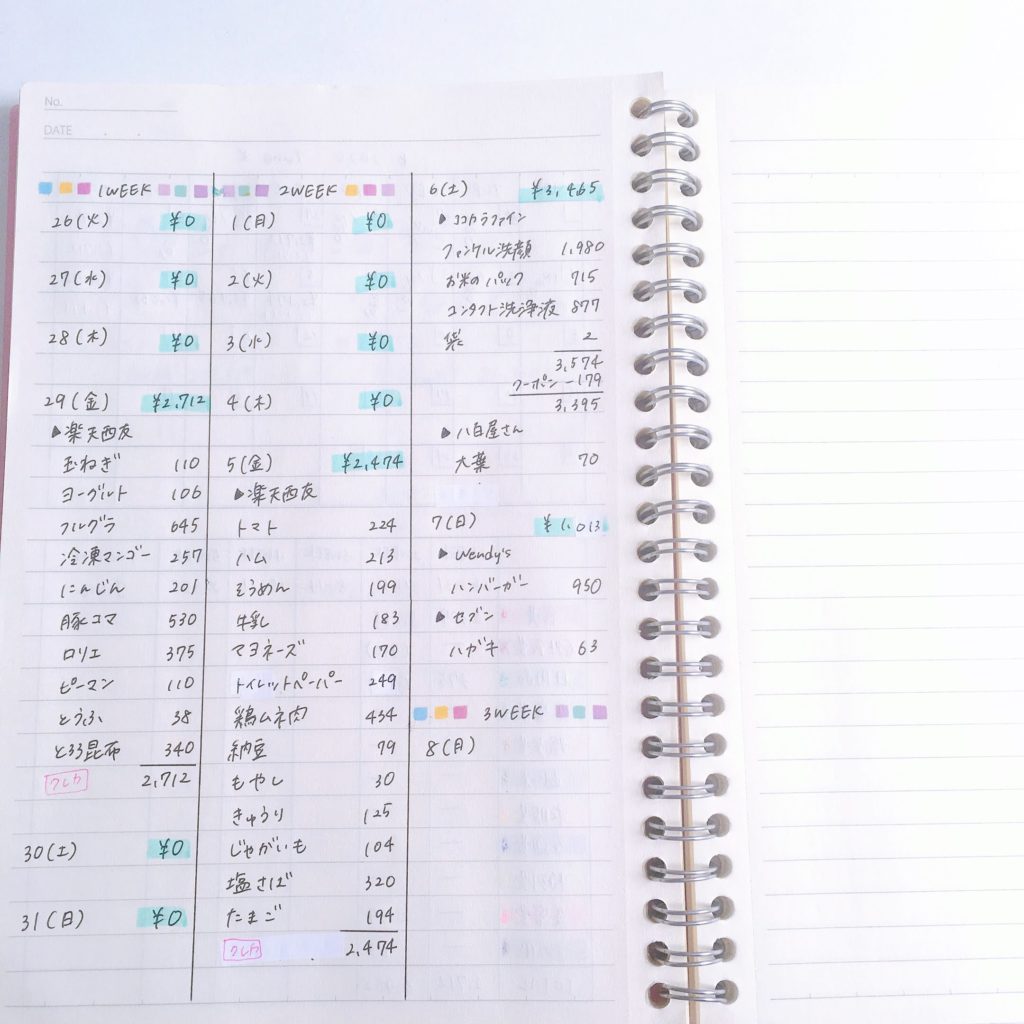 No.
DATE
1WEEK
26(火) ¥0
27(水) ¥0
28(木) ¥0
29(金) ¥2,712
▶楽天西友
玉ねぎ 110
ヨーグルト 106
フルグラ 645
冷凍マンゴー 257
にんじん 201
豚コマ 530
ロリエ 375
ピーマン 110
とうふ 38
とろろ昆布 340
クレカ 2,712
30(土) ¥0
31(日) ¥0
2WEEK
1(月) ¥0
2(火) ¥0
3(水) ¥0
4(木) ¥0
5(金) ¥2,474
▶楽天西友
トマト 224
ハム 213
そうめん 199
牛乳 183
マヨネーズ 170
トイレットペーパー 249
鶏ムネ肉 434
納豆 79
もやし 30
きゅうり 125
じゃがいも 104
塩さば 320
たまご 194
クレカ 2,474
6(土) ¥3,465
▶ココカラファイン
ファンケル洗顔 1,980
お米のパック 715
コンタクト洗浄液 877
袋 2
3,574
クーポン -179
3,395
▶八百屋さん
大葉 70
7(日) ¥1,013
▶Wendy's
ハンバーガー 950
▶セブン
ハガキ 63
3WEEK
8(月)